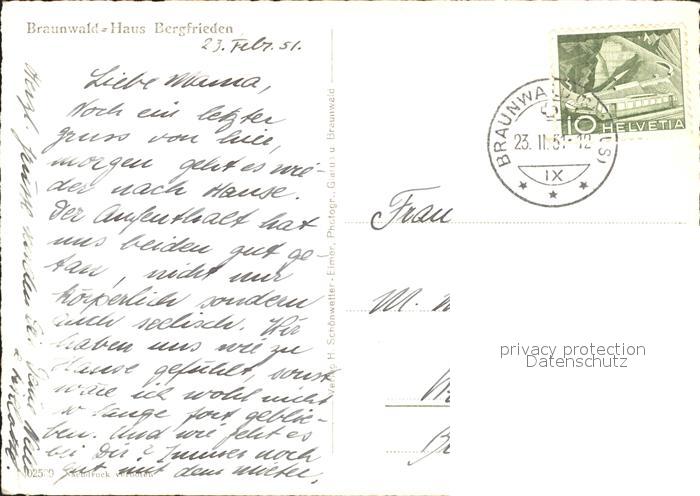 Braunwald-Haus Bergfrieden
23. Febr. 51.
Liebe Mama,
Noch ein letzter
gruss von hier,
morgen geht es wie-
der nach Hause.
Der Aufenthalt hat
uns beiden gut ge-
tan, nicht nur
körperlich sondern
auch seelisch. Wir
haben uns wie zu
Hause gefühlt, sonst
wäre ich wohl nicht
so lange fort geblie-
ben. Und wie geht es
bei Dir? Immer noch
gut mit dem Mieter,
Herzl. Grüsse senden Dir Deine
Verlag H. Schönwetter-Elmer, Photogr., Glarus u. Braunwald
BRAUNWALD (GLARUS)
23. II. 51-12
IX
10 HELVETIA
Frau
M.
privacy protection
Datenschutz
Nachdruck verboten